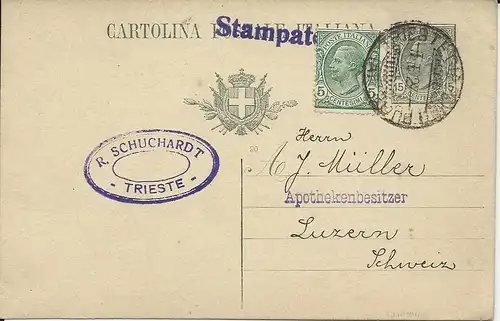 CARTOLINA POSTALE ITALIANA
Stampate
POSTE ITALIANE
5 CENTESIMI 5
15
TRIESTE
20
R. SCHUCHARDT
- TRIESTE -
Herrn
A. J. Müller
Apothekenbesitzer
Luzern
Schweiz